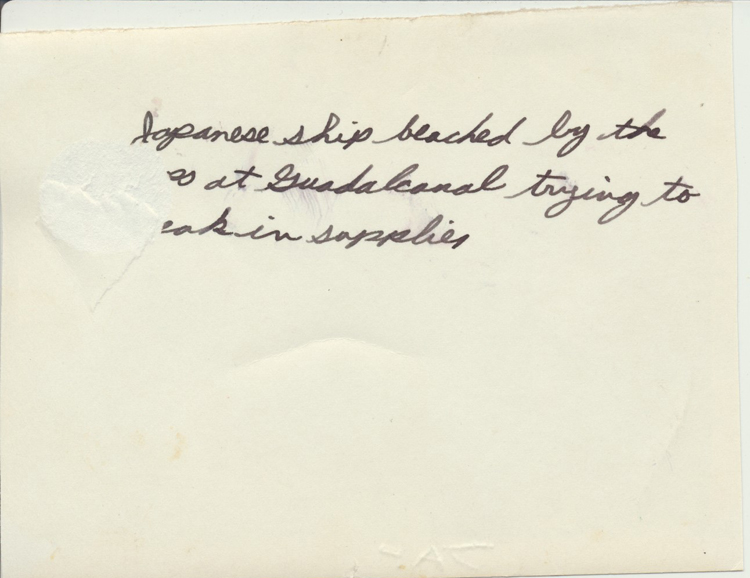 Japanese ship beached by the
at Guadalcanal trying to
in supplies